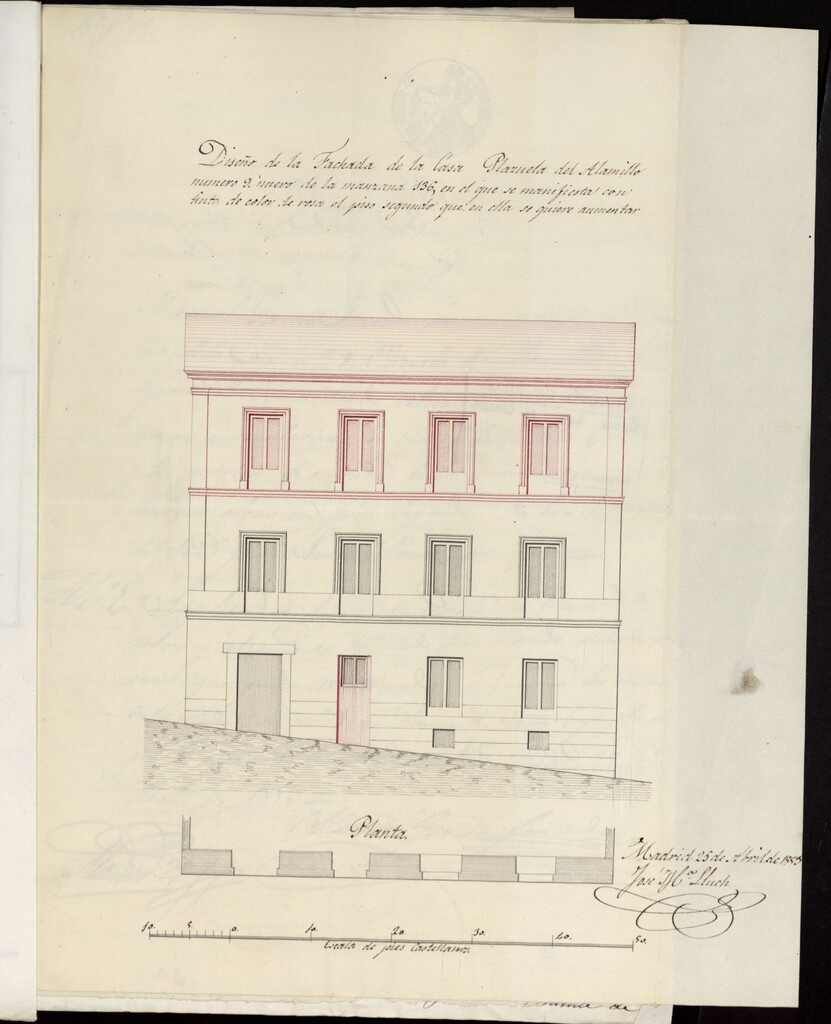 Diseño de la Fachada de la Casa Plazuela del Alamillo
numero 9 nuevo de la manzana 136, en el que se manifiesta con
tinta de color de rosa el piso segundo que en ella se quiere aumentar
Planta.
Madrid 25 de Abril de
José Mª. Lluch
10. 5 0. 10. 20. 30. 40. 50.
Escala de pies Castellanos.